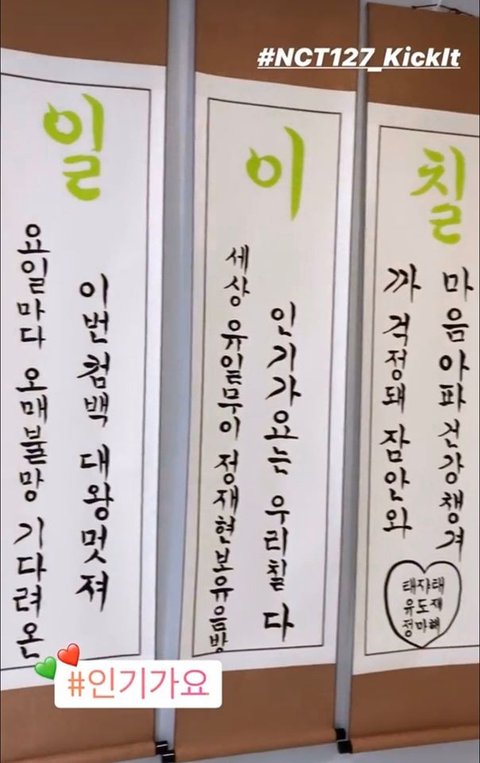 #NCT127_KickIt
일
요일마다 오매불망 기다려온
이번컴백 대왕멋져
이
세상 유일무이 정재현보유음방
인기가요는 우리칠 다
칠
까 걱정돼 잠안와
마음아파 건강챙겨
태쟈태
유도재
정마해
#인기가요